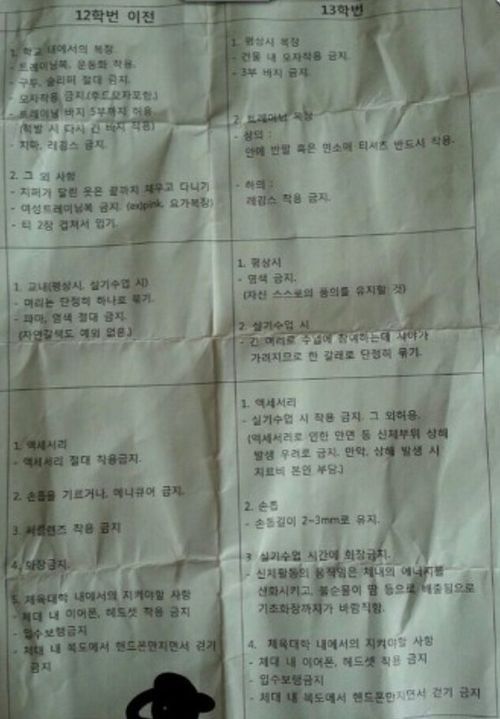 12학번 이전
1. 학교 내에서의 복장
- 트레이닝복, 운동화 착용.
- 구두, 슬리퍼 절대 금지.
- 모자착용 금지.(후드모자포함.)
- 트레이닝 바지 5부까지 허용
(착발 시 다시 긴 바지 착용)
- 치마, 레깅스 금지.
2. 그 외 사항
- 지퍼가 달린 옷은 끝까지 채우고 다니기
- 여성트레이닝복 금지. (ex)pink, 요가복장)
- 티 2장 겹쳐서 입기.
1. 교내(평상시, 실기수업 시)
- 머리는 단정히 하나로 묶기.
- 파마, 염색 절대 금지.
(자연갈색도 예외 없음.)
1. 액세서리
- 액세서리 절대 착용금지.
2. 손톱을 기르거나, 매니큐어 금지.
3. 써클렌즈 착용 금지
4. 화장금지.
5. 체육대학 내에서의 지켜야할 사항
- 체대 내 이어폰, 헤드셋 착용 금지
- 입수보행금지
- 체대 내 복도에서 핸드폰만지면서 걷기
금지
13학번
1. 평상시 복장
- 건물 내 모자착용 금지.
- 3부 바지 금지.
2. 트레이닝 복장
- 상의 :
안에 반팔 혹은 민소매 티셔츠 반드시 착용.
- 하의 :
레깅스 착용 금지.
1. 평상시
- 염색 금지.
(자신 스스로의 품위를 유지할 것)
2. 실기수업 시
- 긴 머리로 수업에 참여하는데 시야가
가려지므로 한 갈래로 단정히 묶기.
1. 액세서리
- 실기수업 시 착용 금지. 그 외허용.
(액세서리로 인한 안면 등 신체부위 상해
발생 우려로 금지. 만약, 상해 발생 시
치료비 본인 부담.)
2. 손톱
- 손톱길이 2~3mm로 유지.
3 실기수업 시간에 화장금지.
- 신체활동의 움직임은 체내의 에너지를
산화시키고, 불순물이 땀 등으로 배출됨으로
기초화장까지가 바람직함.
4. 체육대학 내에서의 지켜야할 사항
- 체대 내 이어폰, 헤드셋 착용 금지
- 입수보행금지
- 체대 내 복도에서 핸드폰만지면서 걷기 금지